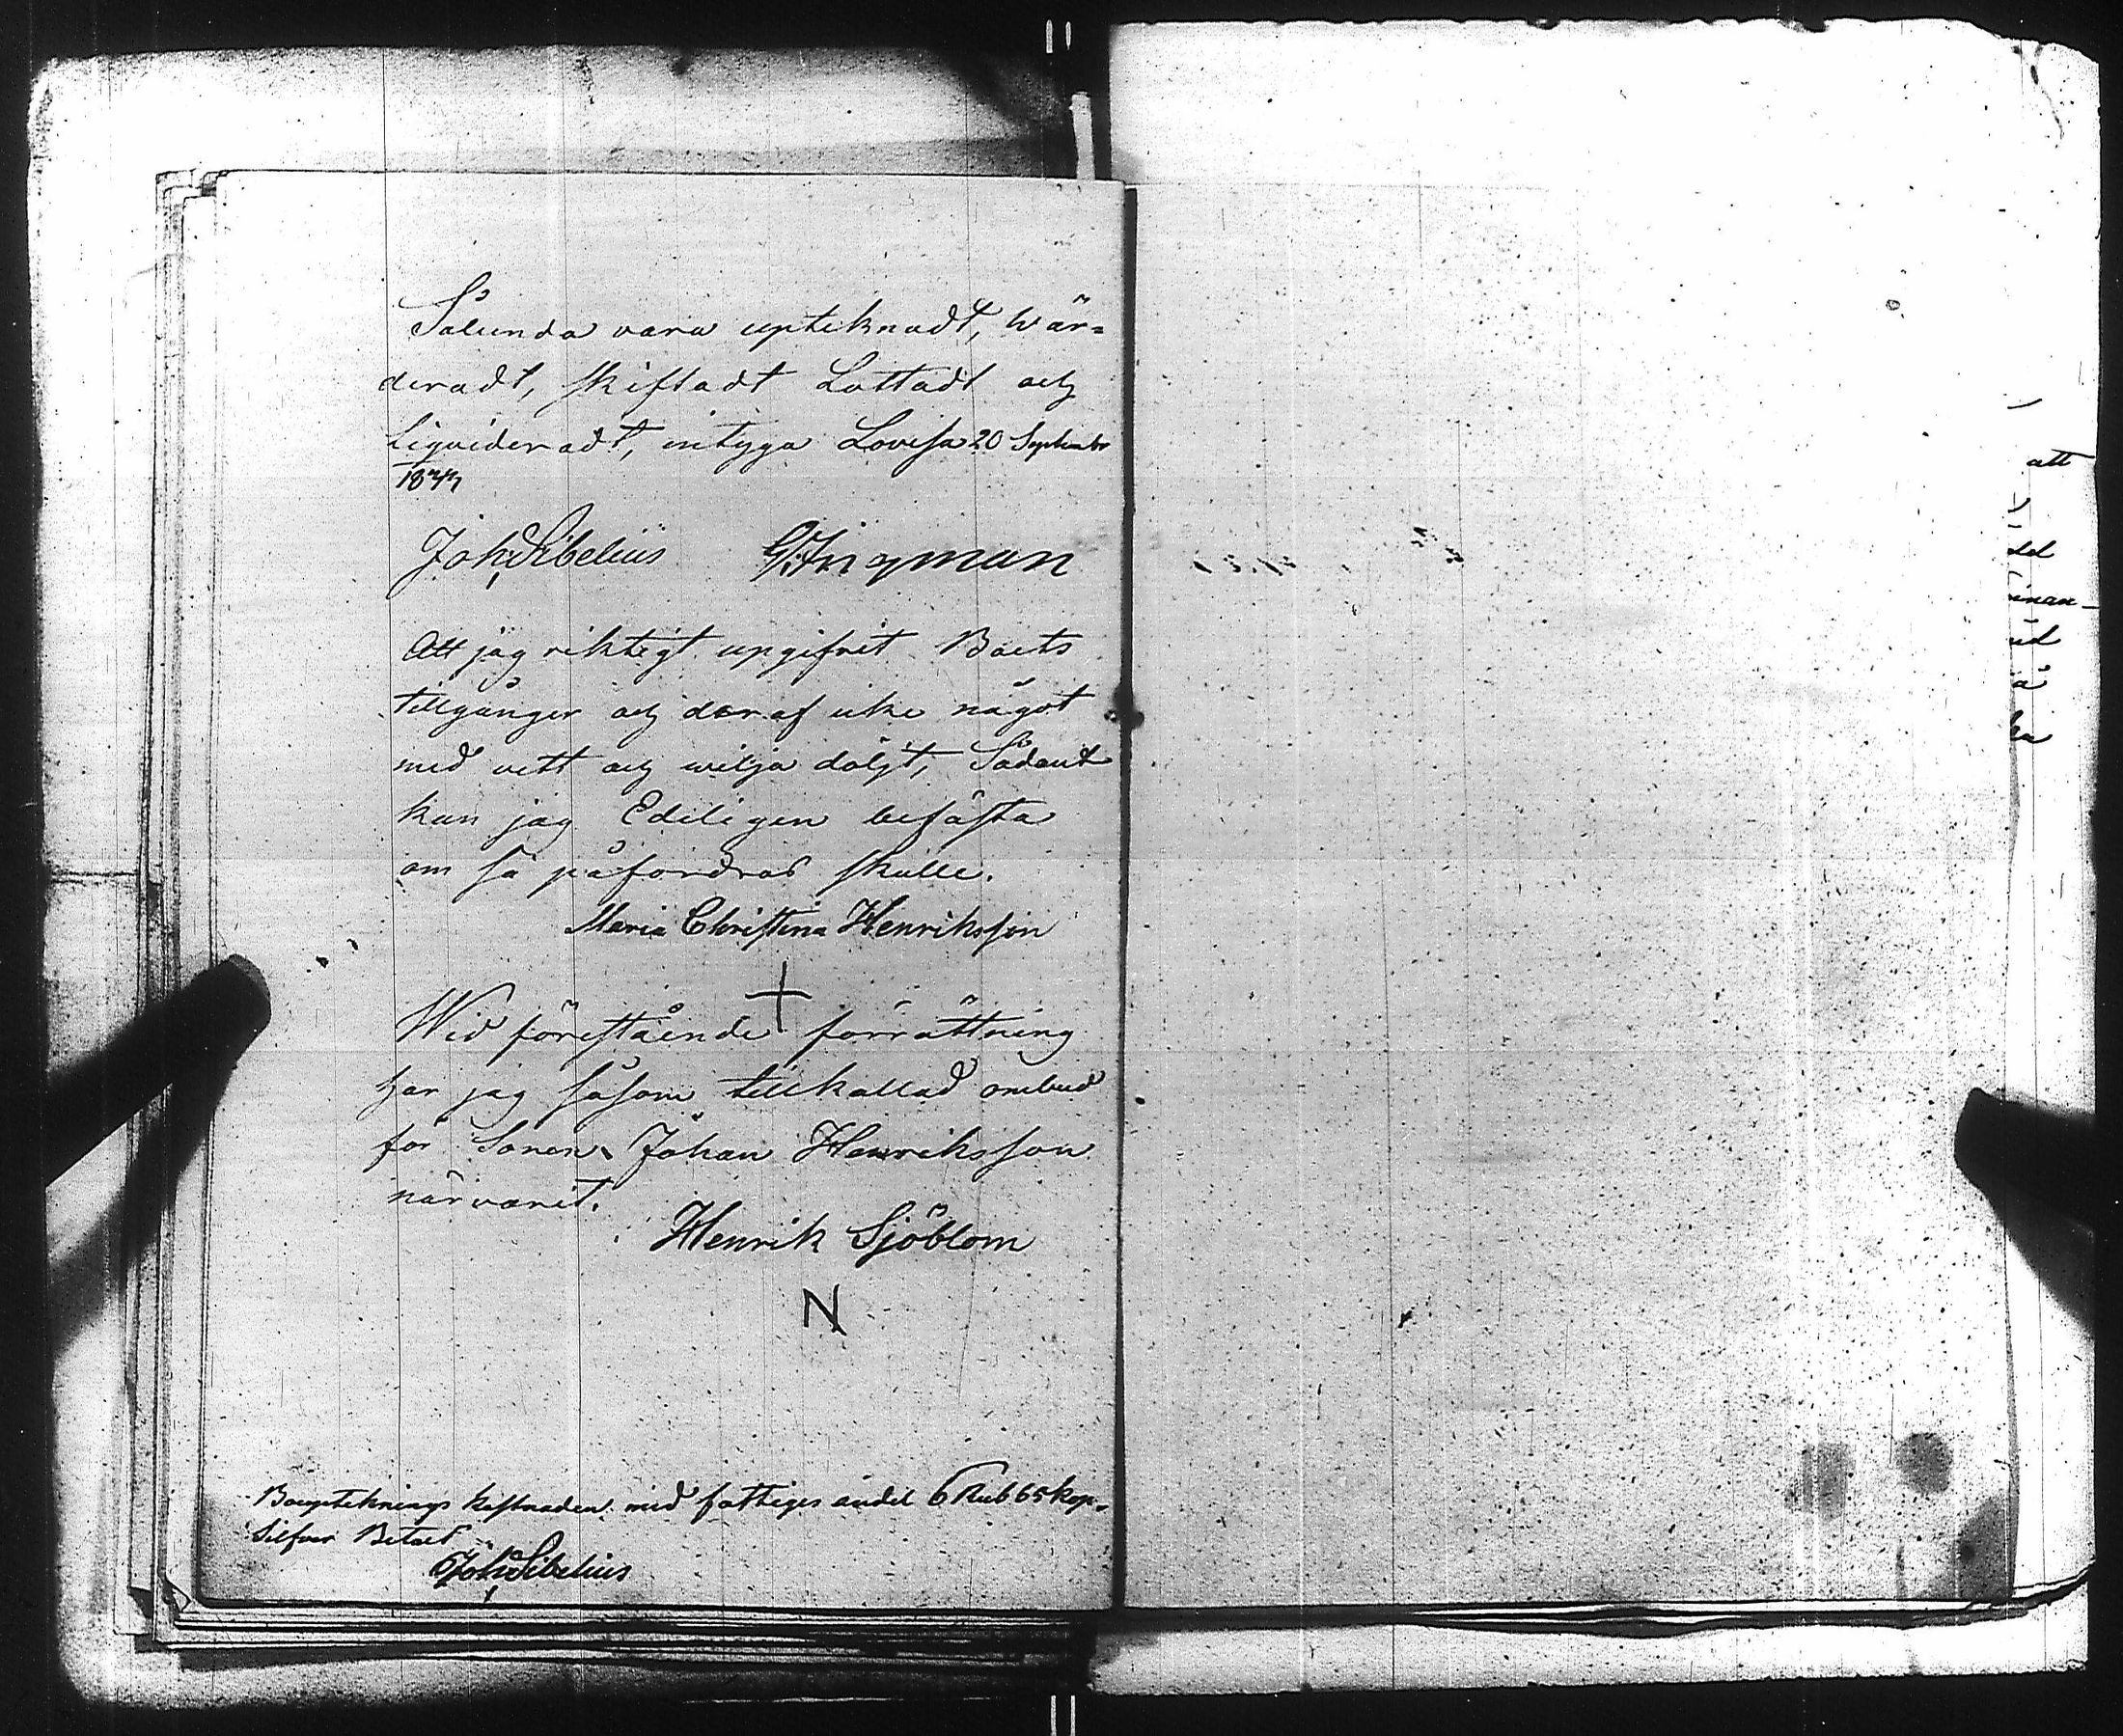 Sålunda vara upteknadt, wär=
deradt, skiftadt Lottadt och
Liqvideradt, intyga Lovisa 20 September
1844
Joh. Sibelius G. Ingman
Att jag riktigt upgifvit Boets
tillgångar och deraf icke något
med vett och wilja döljt, Sådant
kan jag Edeligen befästa
om så påfordras skulle.
Maria Christina Henriksson
Wid förestående förrättning
har jag såsom tillkallad ombud
för Sonen Johan Henriksson
närvarit.
Henrik Sjöblom
N
Boupteknings kostnaden med fattiges andel 6 Rub 65 kop.
Silfver Betalt
Joh. Sibelius
att